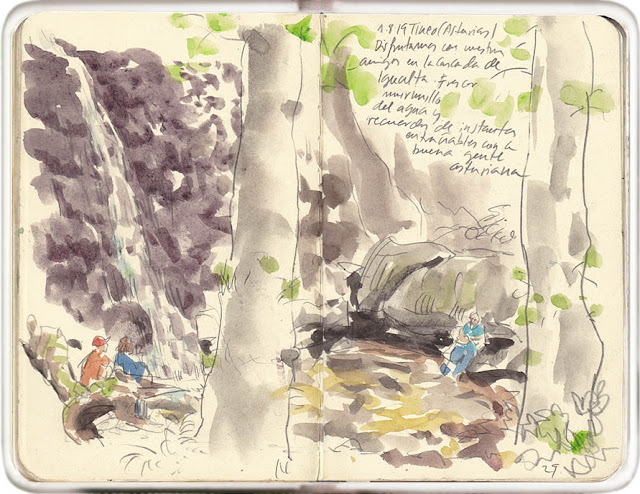 1.8.19 Tineo (Asturias)
Disfrutamos con nuestros
amigos en la cascada de
Igualta. Frescor
murmullo
del agua y
recuerdos de instantes
entrañables con la
buena gente
asturiana
29